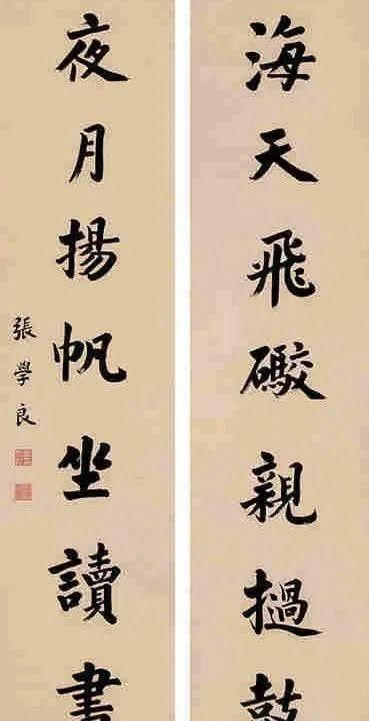 海天飛礮親撾鼓
夜月揚帆坐讀書
張學良